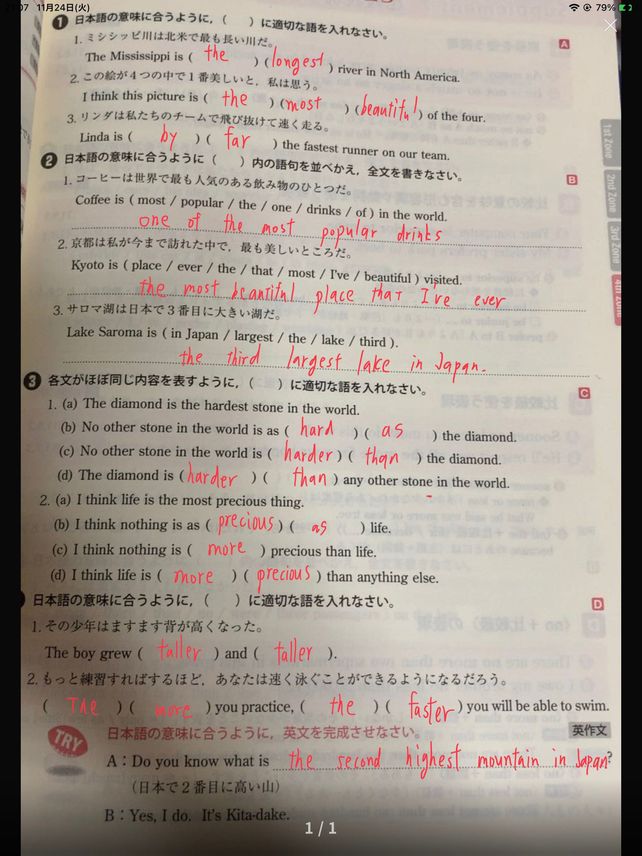 21:07 11月24日(火) 79%
❶ 日本語の意味に合うように，( )に適切な語を入れなさい。 A
1. ミシシッピ川は北米で最も長い川だ。
The Mississippi is ( the ) ( longest ) river in North America.
2. この絵が4つの中で1番美しいと，私は思う。
I think this picture is ( the ) ( most ) ( beautiful ) of the four.
3. リンダは私たちのチームで飛び抜けて速く走る。
Linda is ( by ) ( far ) the fastest runner on our team.
❷ 日本語の意味に合うように( )内の語句を並べかえ，全文を書きなさい。 B
1. コーヒーは世界で最も人気のある飲み物のひとつだ。
Coffee is ( most / popular / the / one / drinks / of ) in the world.
one of the most popular drinks
2. 京都は私が今まで訪れた中で，最も美しいところだ。
Kyoto is ( place / ever / the / that / most / I've / beautiful ) visited.
the most beautiful place that I've ever
3. サロマ湖は日本で3番目に大きい湖だ。
Lake Saroma is ( in Japan / largest / the / lake / third ).
the third largest lake in Japan.
❸ 各文がほぼ同じ内容を表すように，( )に適切な語を入れなさい。 C
1. (a) The diamond is the hardest stone in the world.
(b) No other stone in the world is as ( hard ) ( as ) the diamond.
(c) No other stone in the world is ( harder ) ( than ) the diamond.
(d) The diamond is ( harder ) ( than ) any other stone in the world.
2. (a) I think life is the most precious thing.
(b) I think nothing is as ( precious ) ( as ) life.
(c) I think nothing is ( more ) precious than life.
(d) I think life is ( more ) ( precious ) than anything else.
日本語の意味に合うように，( )に適切な語を入れなさい。 D
1. その少年はますます背が高くなった。
The boy grew ( taller ) and ( taller ).
2. もっと練習すればするほど，あなたは速く泳ぐことができるようになるだろう。
( The ) ( more ) you practice, ( the ) ( faster ) you will be able to swim.
TRY 日本語の意味に合うように，英文を完成させなさい。 英作文
A : Do you know what is the second highest mountain in Japan?
(日本で2番目に高い山)
B : Yes, I do. It's Kita-dake.
1 / 1
1st Zone
2nd Zone
3rd Zone